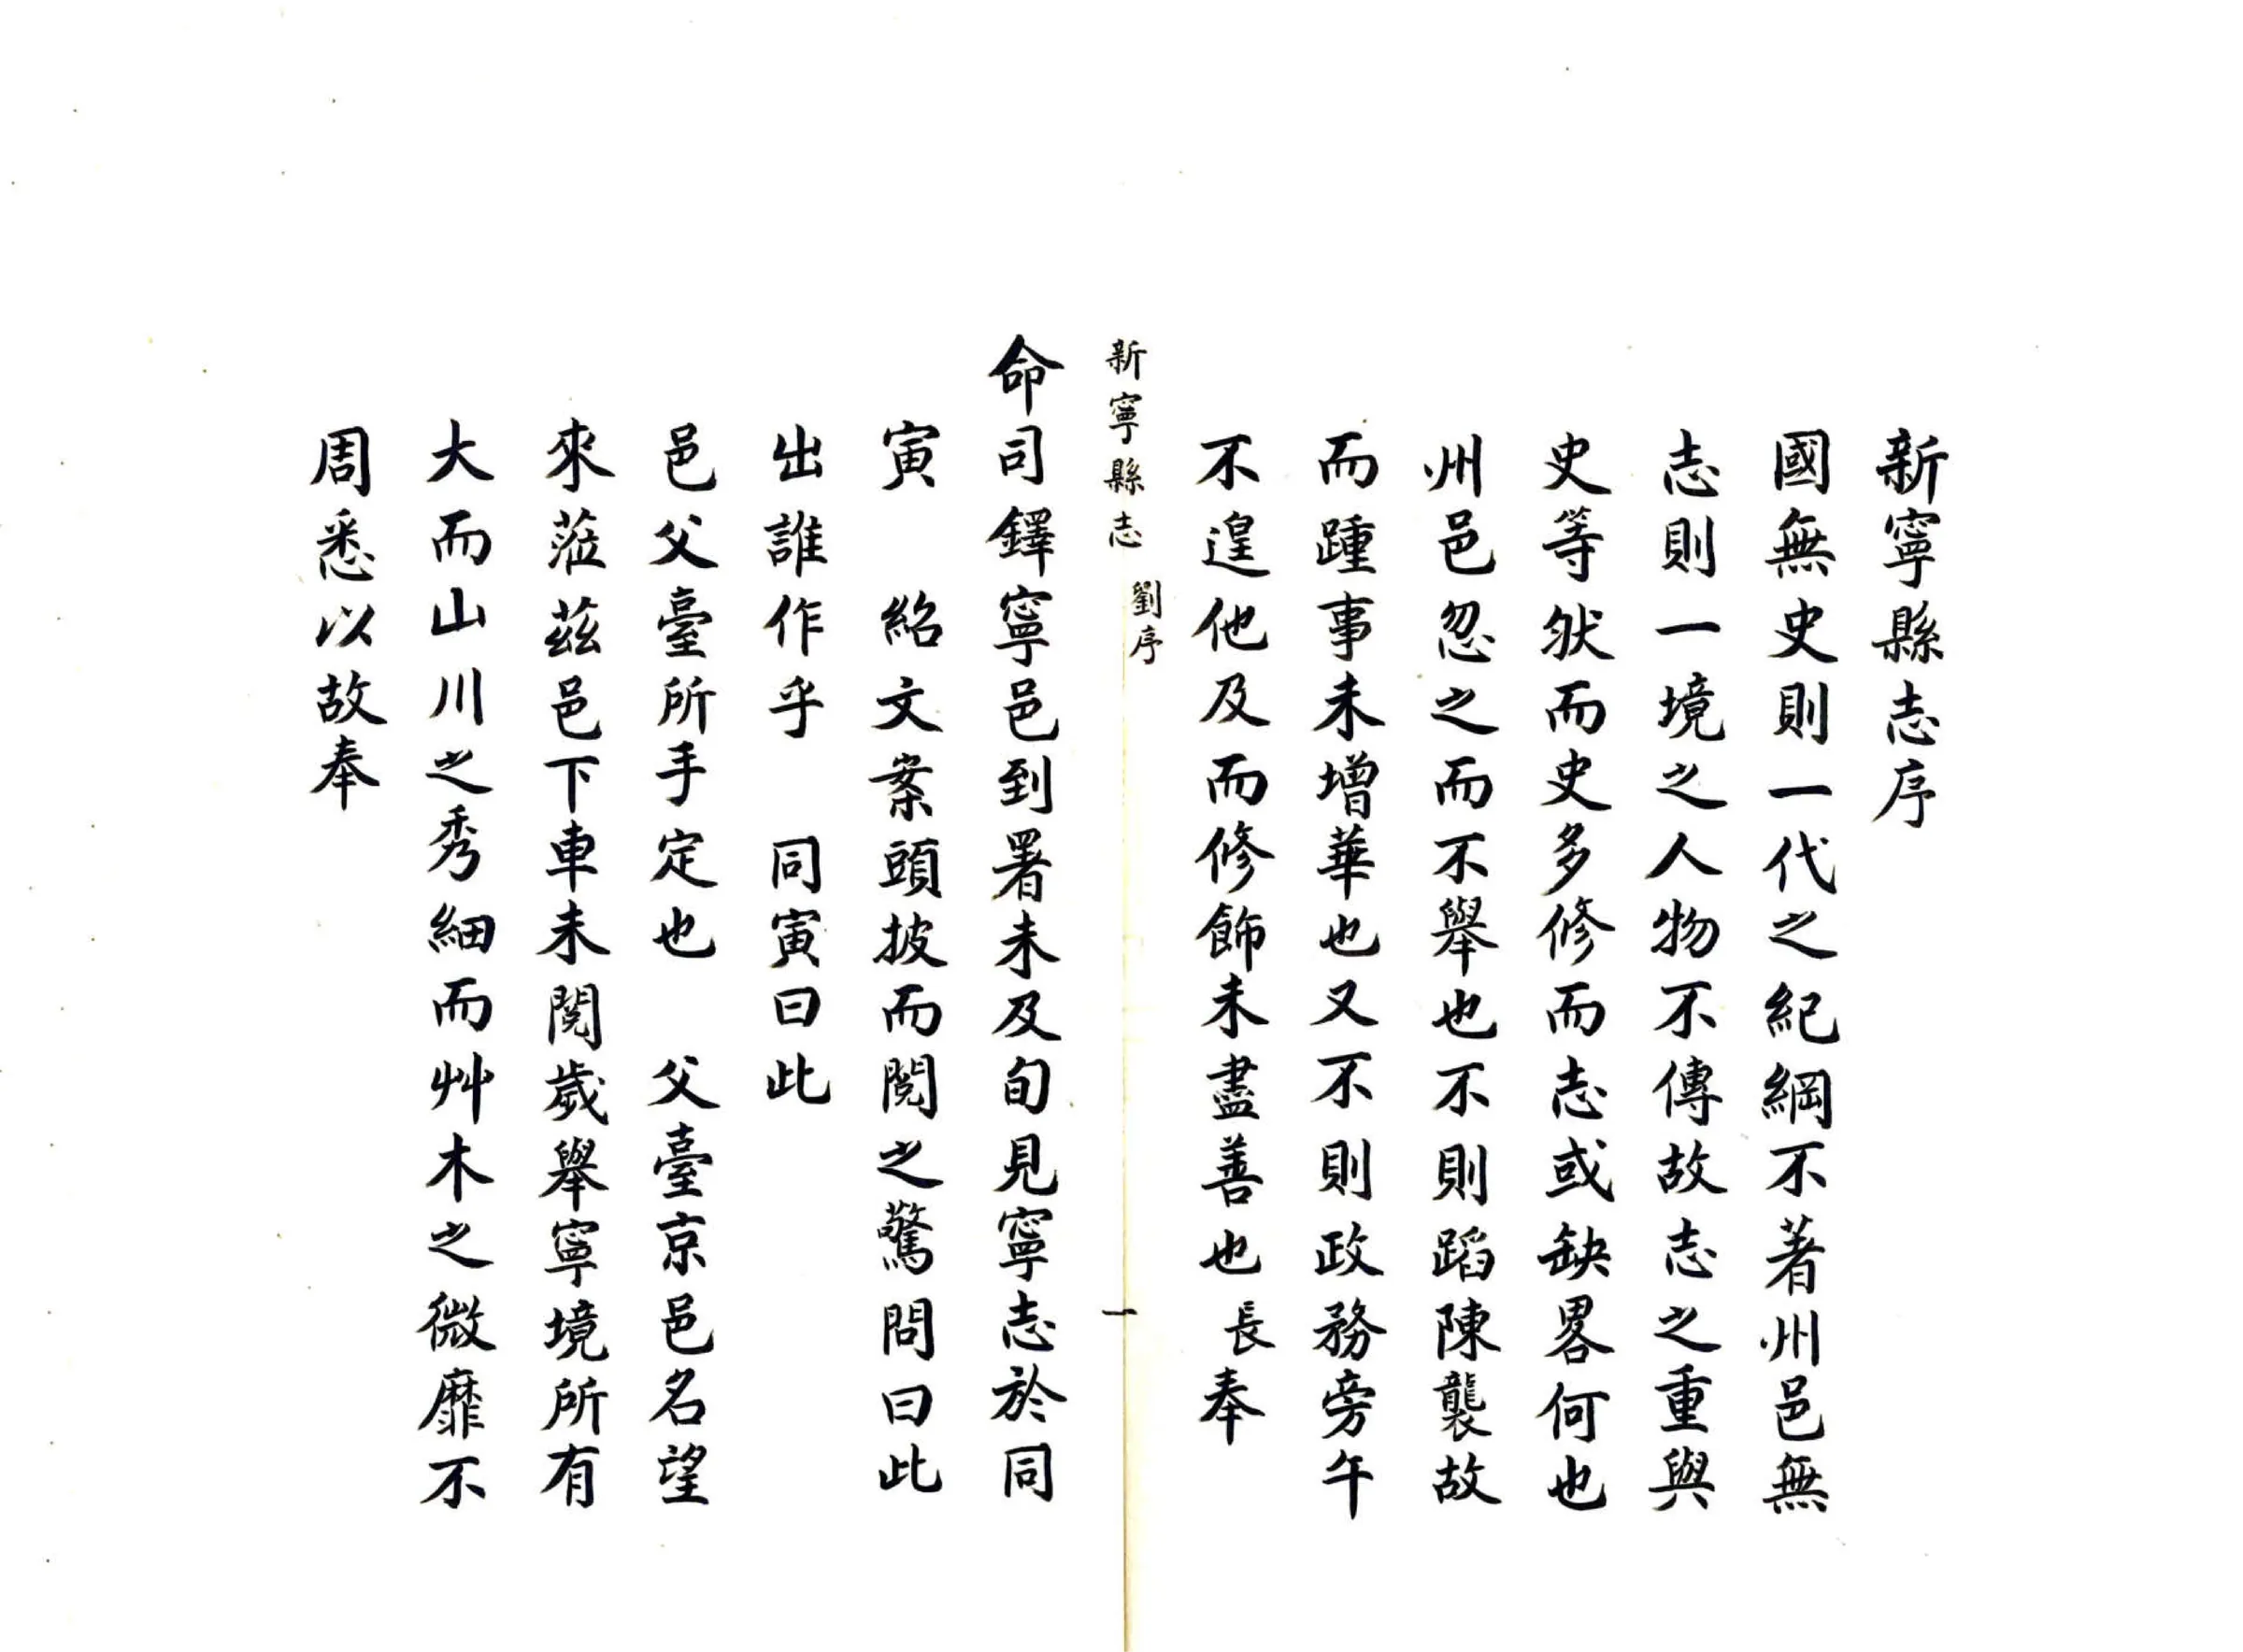 新寧縣志序
國無史則一代之紀綱不著州邑無
志則一境之人物不傳故志之重與
史等狀而史多修而志或缺畧何也
州邑忽之而不舉也不則蹈陳襲故
而踵事未增華也又不則政務旁午
不遑他及而修飾未盡善也長奉
新寧縣志 劉序 一
命司鐸寧邑到署未及旬見寧志於同
寅 紹文案頭披而閱之驚問曰此
出誰作乎 同寅曰此
邑父臺所手定也 父臺京邑名望
來蒞茲邑下車未閱歲舉寧境所有
大而山川之秀細而艸木之微靡不
周悉以故奉